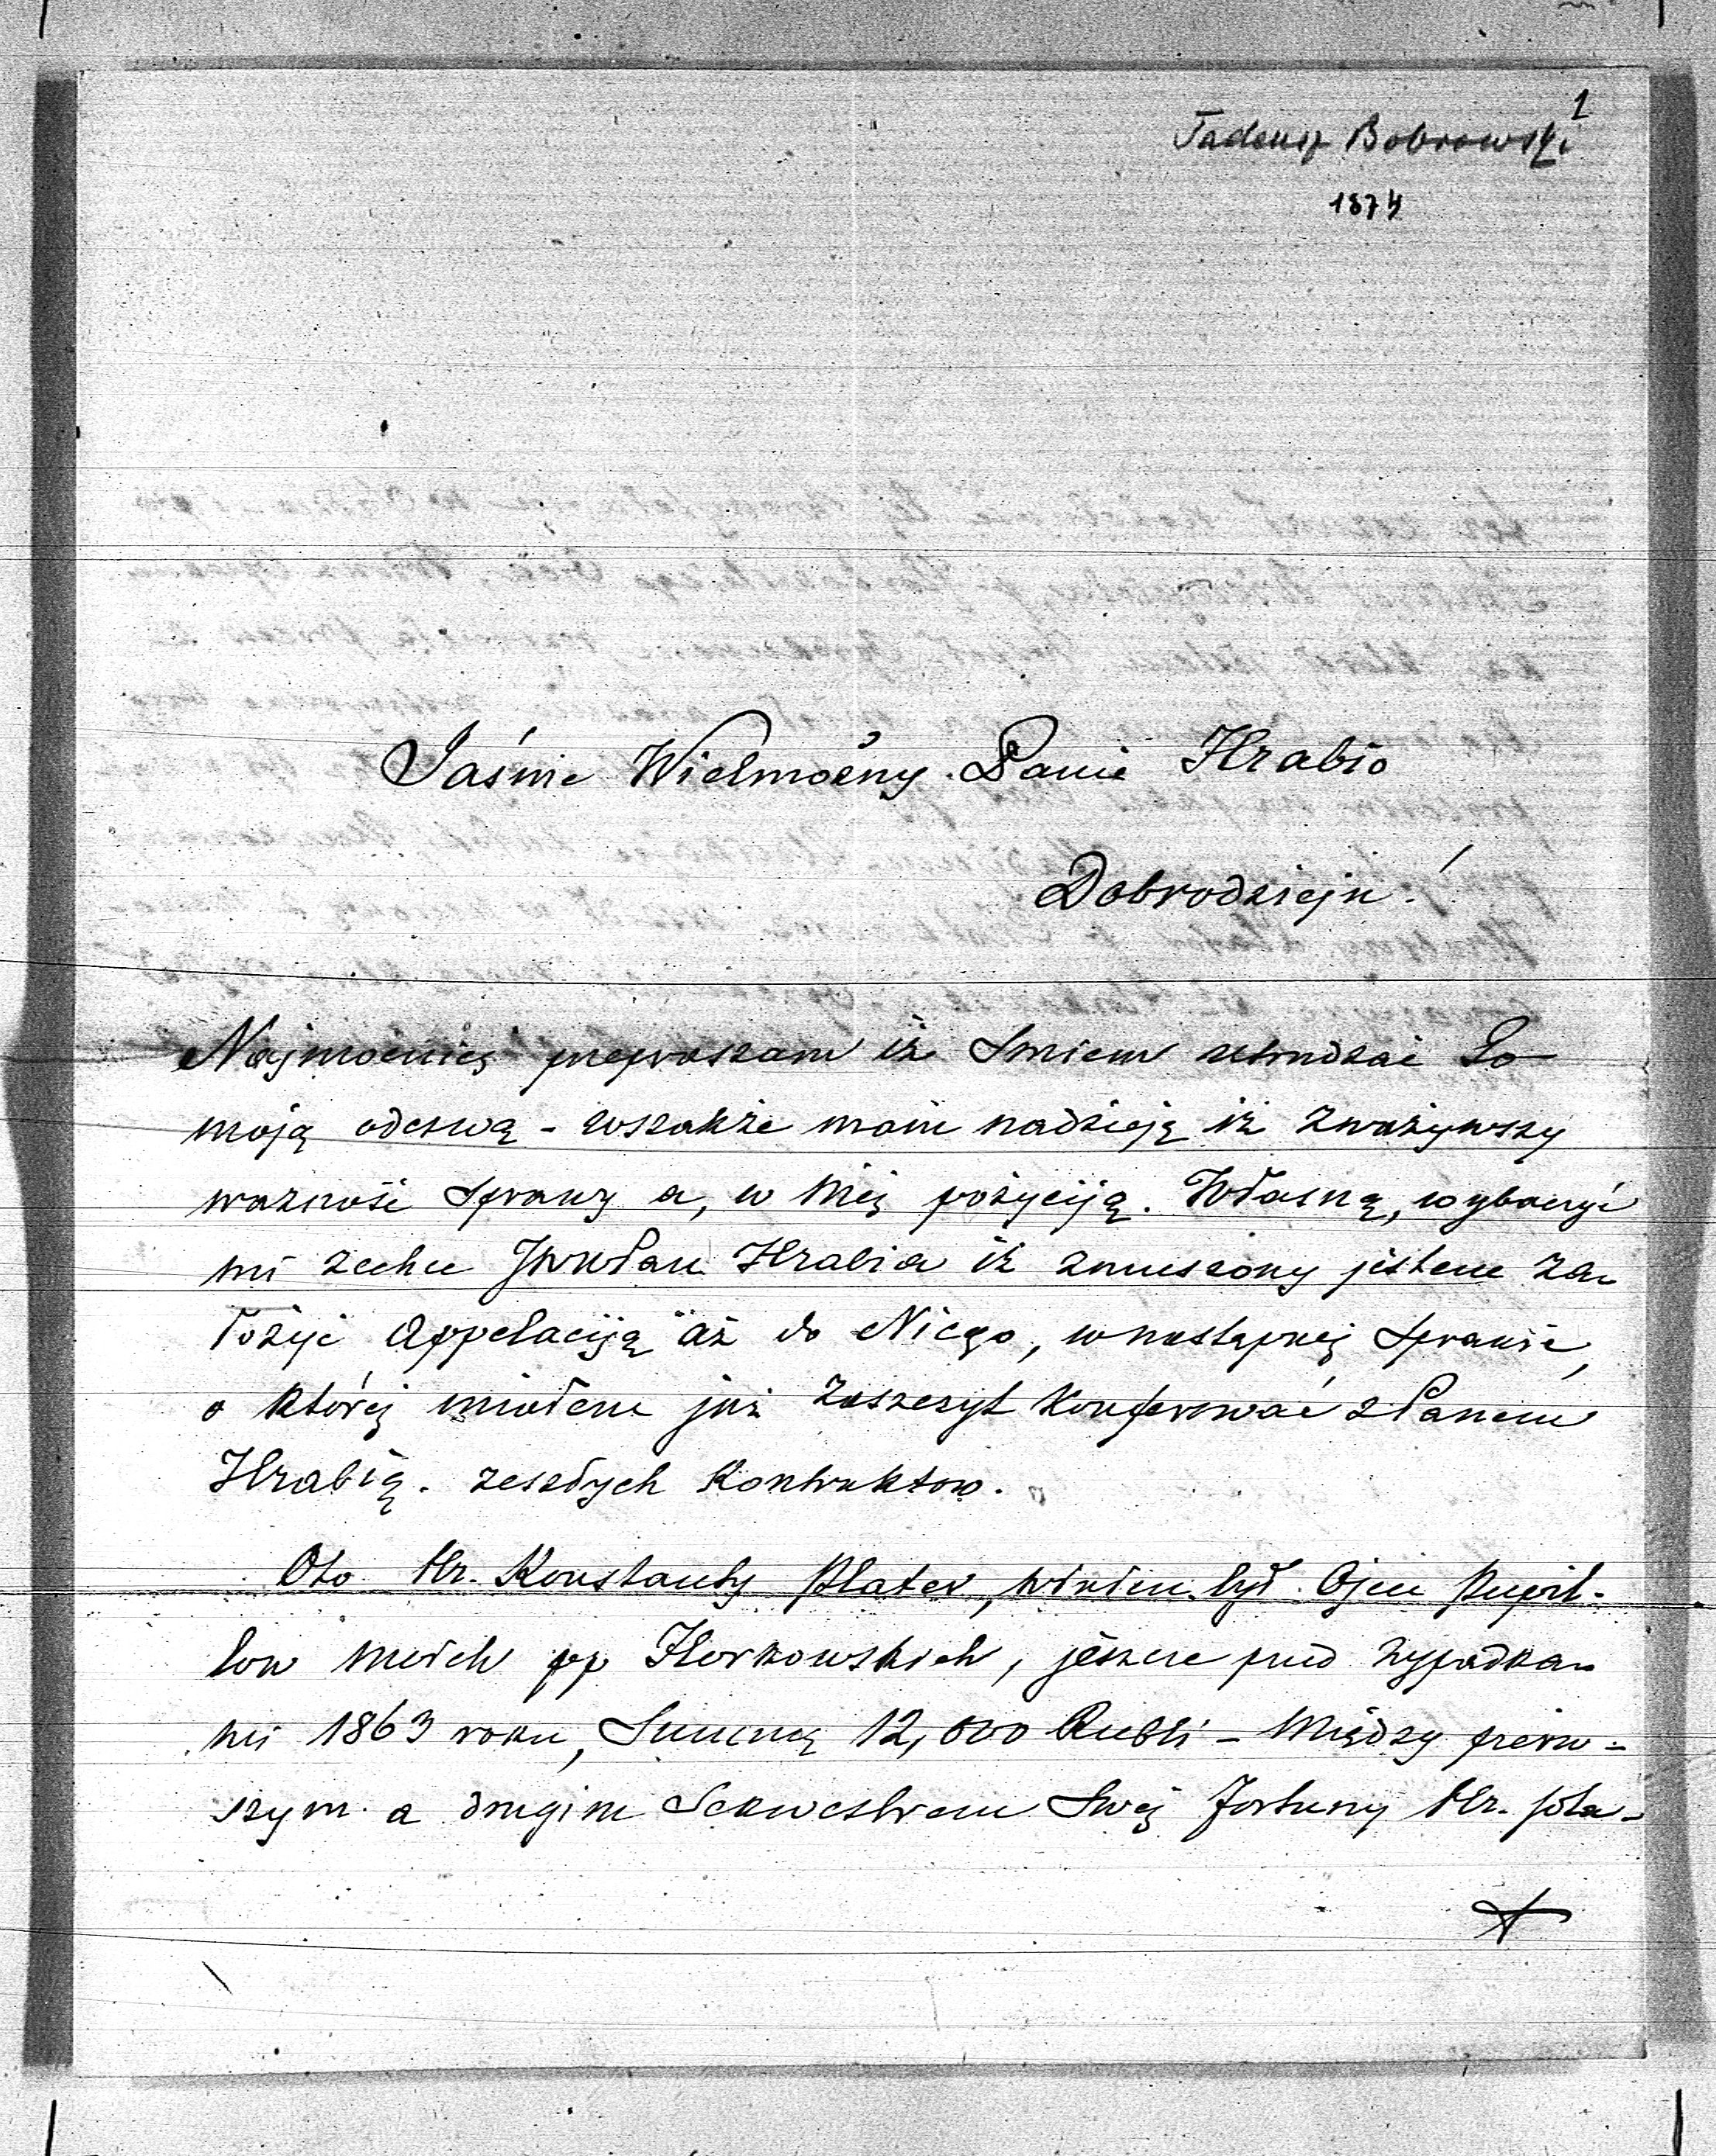 1
Tadeusz Bobrowski
1874
Jaśnie Wielmożny Panie Hrabio
Dobrodzieju!
Najmocniej przepraszam iż śmiem utrudzać Go
moją odezwą - wszakże mam nadzieję iż zważywszy
ważność sprawy a, w niej pozyciją Własną, wybaczyć
mi zechce JWPan Hrabia iż zmuszony jestem za-
łożyć Appelaciją aż do Niego, w następnej sprawie,
o której miałem już zaszczyt konferować z Panem
Hrabią. zeszłych Kontraktow.
Oto Hr. Konstanty Plater, winien był Ojcu Pupil-
low moich pp Horkowskich, jeszcze przed wypadka-
mi 1863 roku, Summę 12,000 Rubli - Między pierw-
szym a drugim Sekwestrem Swej fortuny Hr. Pla-